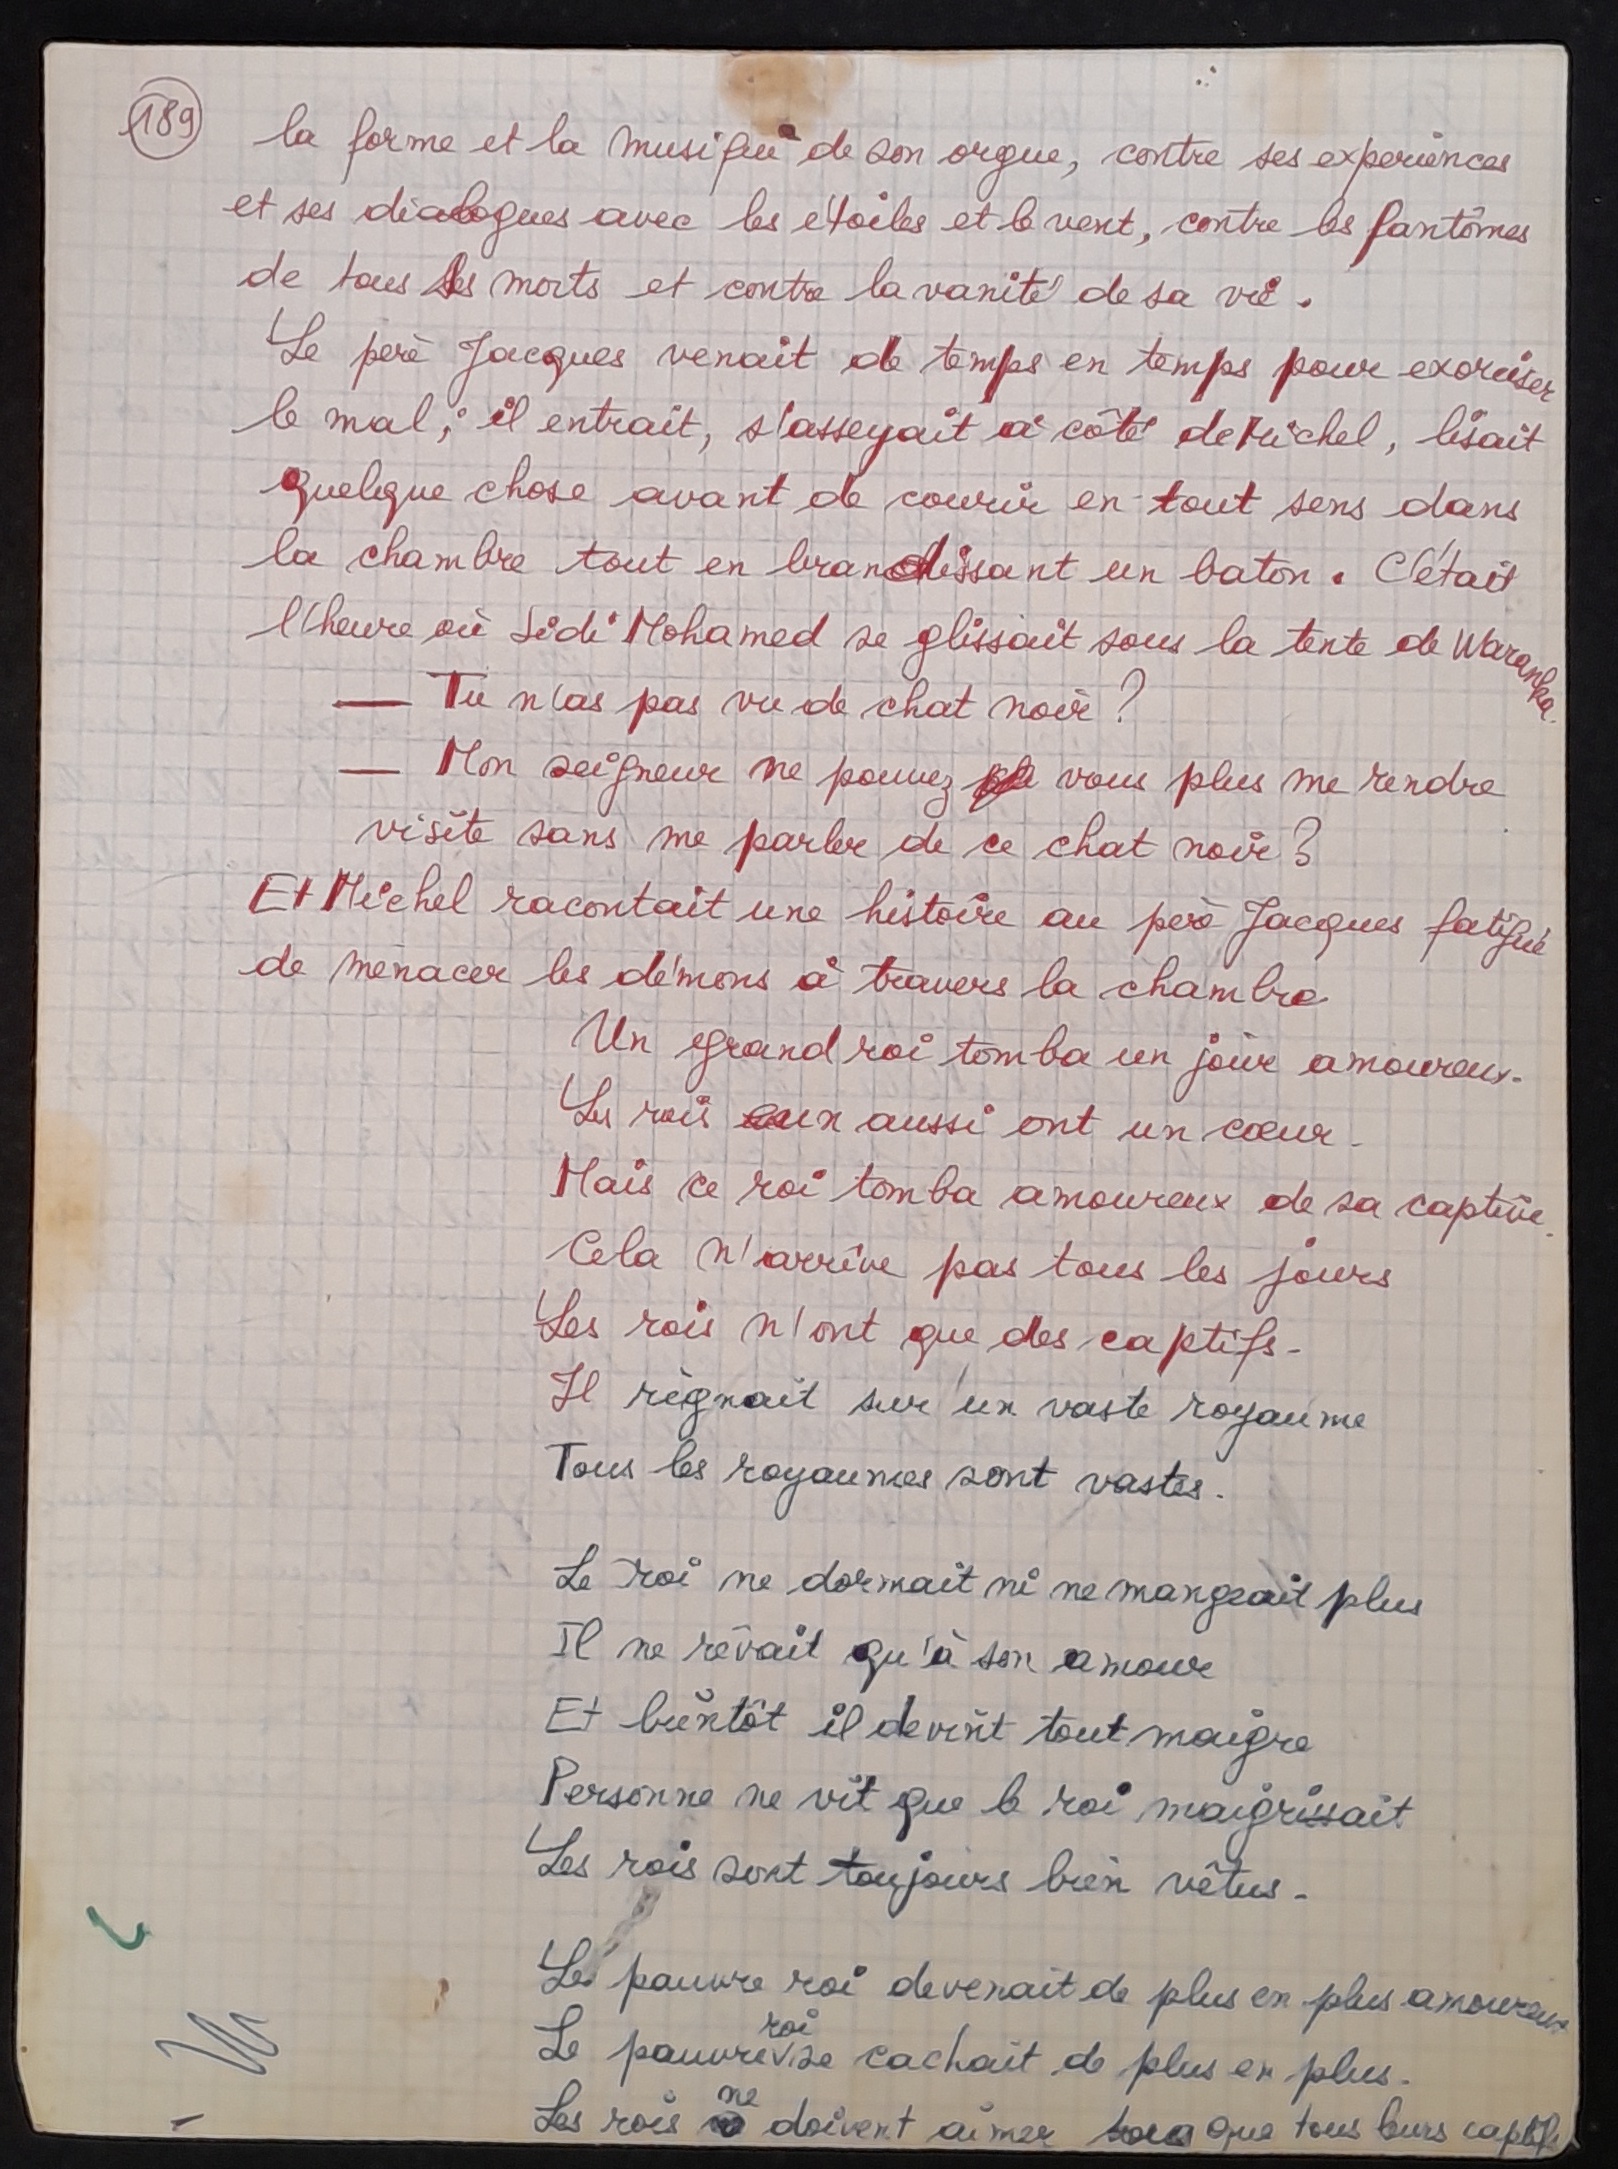 189
la forme et la musique de son orgue, contre ses experiences
et ses dialogues avec les étoiles et le vent, contre les fantômes
de tous les morts et contre la vanité de sa vie.
Le père Jacques venait de temps en temps pour exorciser
le mal; il entrait, s'asseyait à côté de Michel, lisait
quelque chose avant de courir en tout sens dans
la chambre tout en brandissant un baton. C'était
l'heure où Sidi Mohamed se glissait sous la tente de Waranka.
— Tu n'as pas vu de chat noir?
— Mon seigneur ne pouvez vous plus me rendre
visite sans me parler de ce chat noir?
Et Michel racontait une histoire au père Jacques fatigué
de menacer les démons à travers la chambre
Un grand roi tomba un jour amoureux.
Les rois eux aussi ont un cœur.
Mais ce roi tomba amoureux de sa captive.
Cela n'arrive pas tous les jours
Les rois n'ont que des captifs.
Il règnait sur un vaste royaume
Tous les royaumes sont vastes.
Le roi ne dormait ni ne mangeait plus
Il ne rêvait qu'à son amour
Et bientôt il devint tout maigre
Personne ne vit que le roi maigrissait
Les rois sont toujours bien vêtus.
Le pauvre roi devenait de plus en plus amoureux
Le pauvre roi se cachait de plus en plus.
Les rois ne doivent aimer que tous leurs captifs